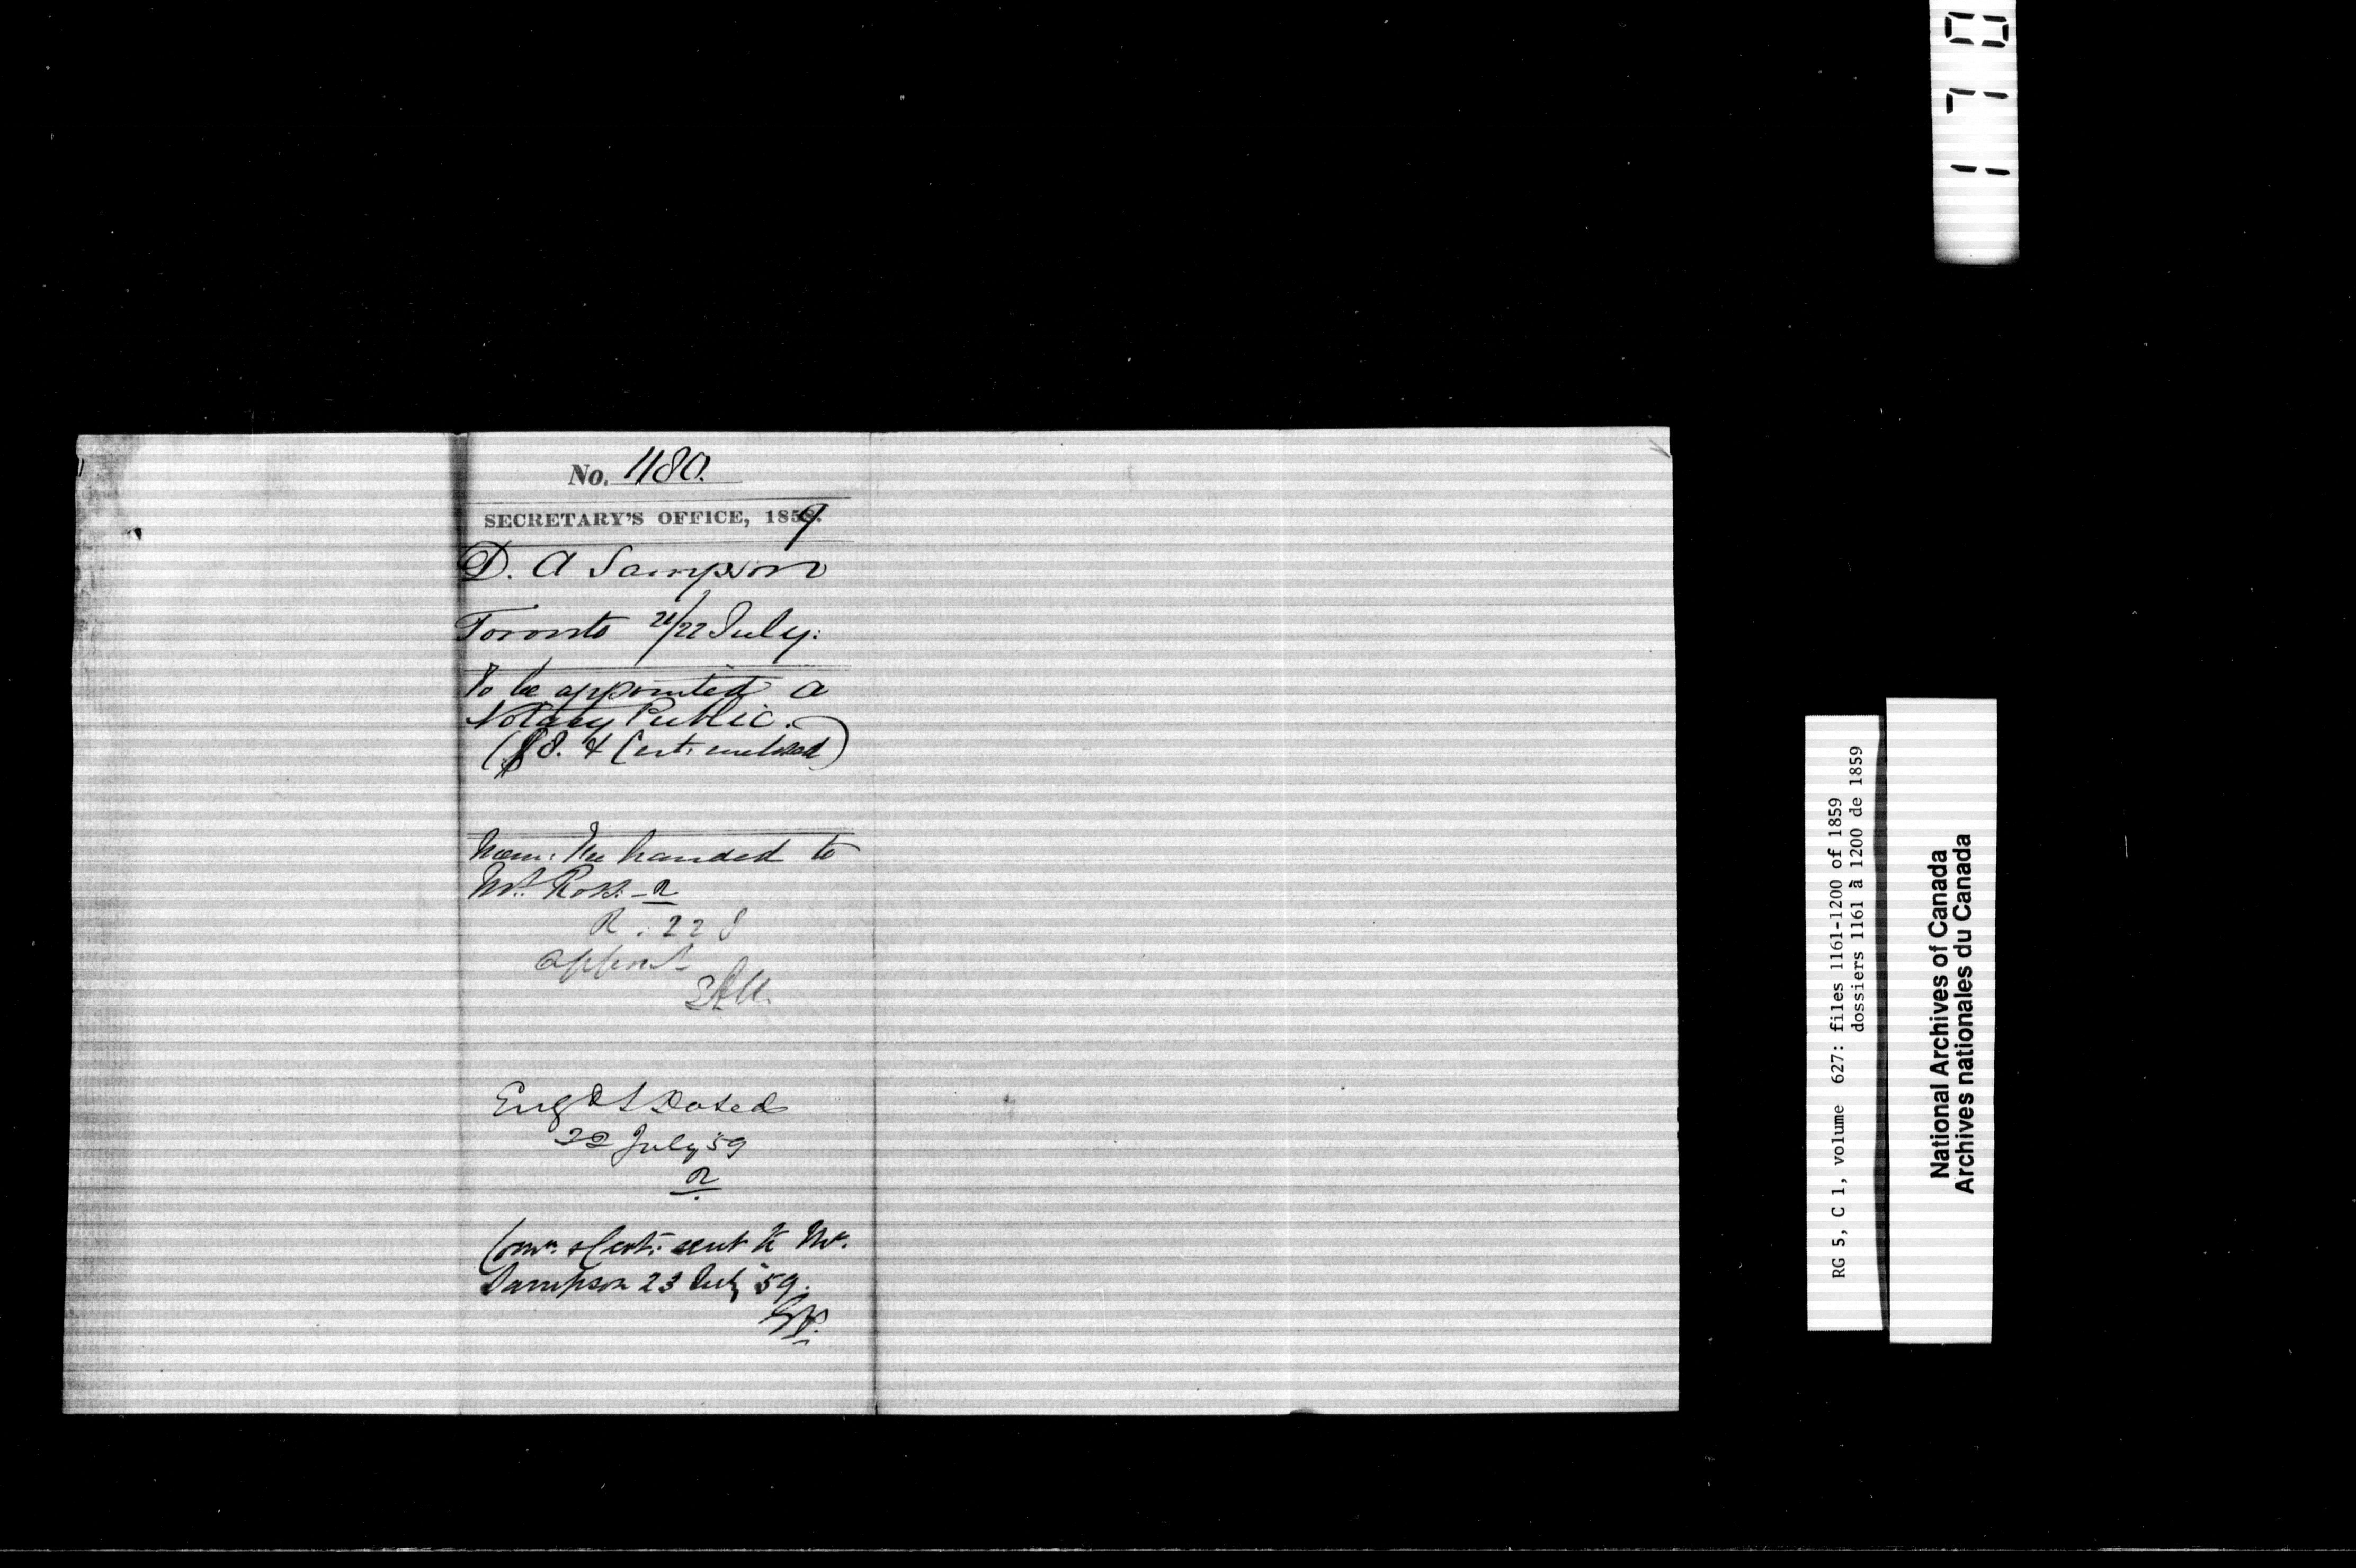 No. 1180.
SECRETARY'S OFFICE, 1859
D. A Sampson
Toronto 21/22 July.
To be appointed a
Notary Public.
($8. & Cert. enclosed)
Mem: Fee handed to
Mr. Ross.
R. 22 J
Appoint
Engd & Dated
22 July 59
Comn. & Cert: sent to Mr.
Sampson 23 July "59.
170
RG 5, C 1, volume 627: files 1161-1200 of 1859
dossiers 1161 à 1200 de 1859
National Archives of Canada
Archives nationales du Canada